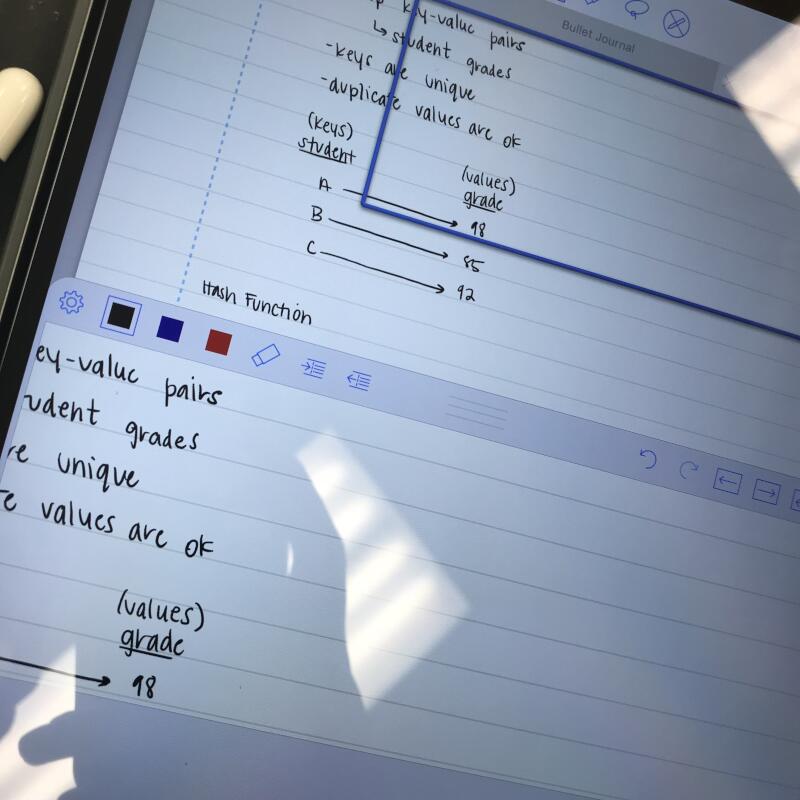 Bullet Journal
key-value pairs
↳ student grades
-keys are unique
-duplicate values are ok
(keys) (values)
student grade
A → 98
B → 85
C → 92
Hash Function
ey-value pairs
udent grades
re unique
e values are ok
(values)
grade
→ 98